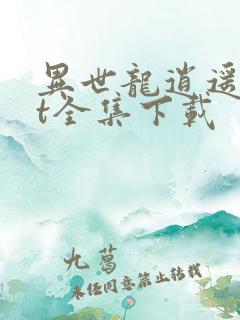 異世龍逍遥
t全集下载
九葛
未经同意禁止转载